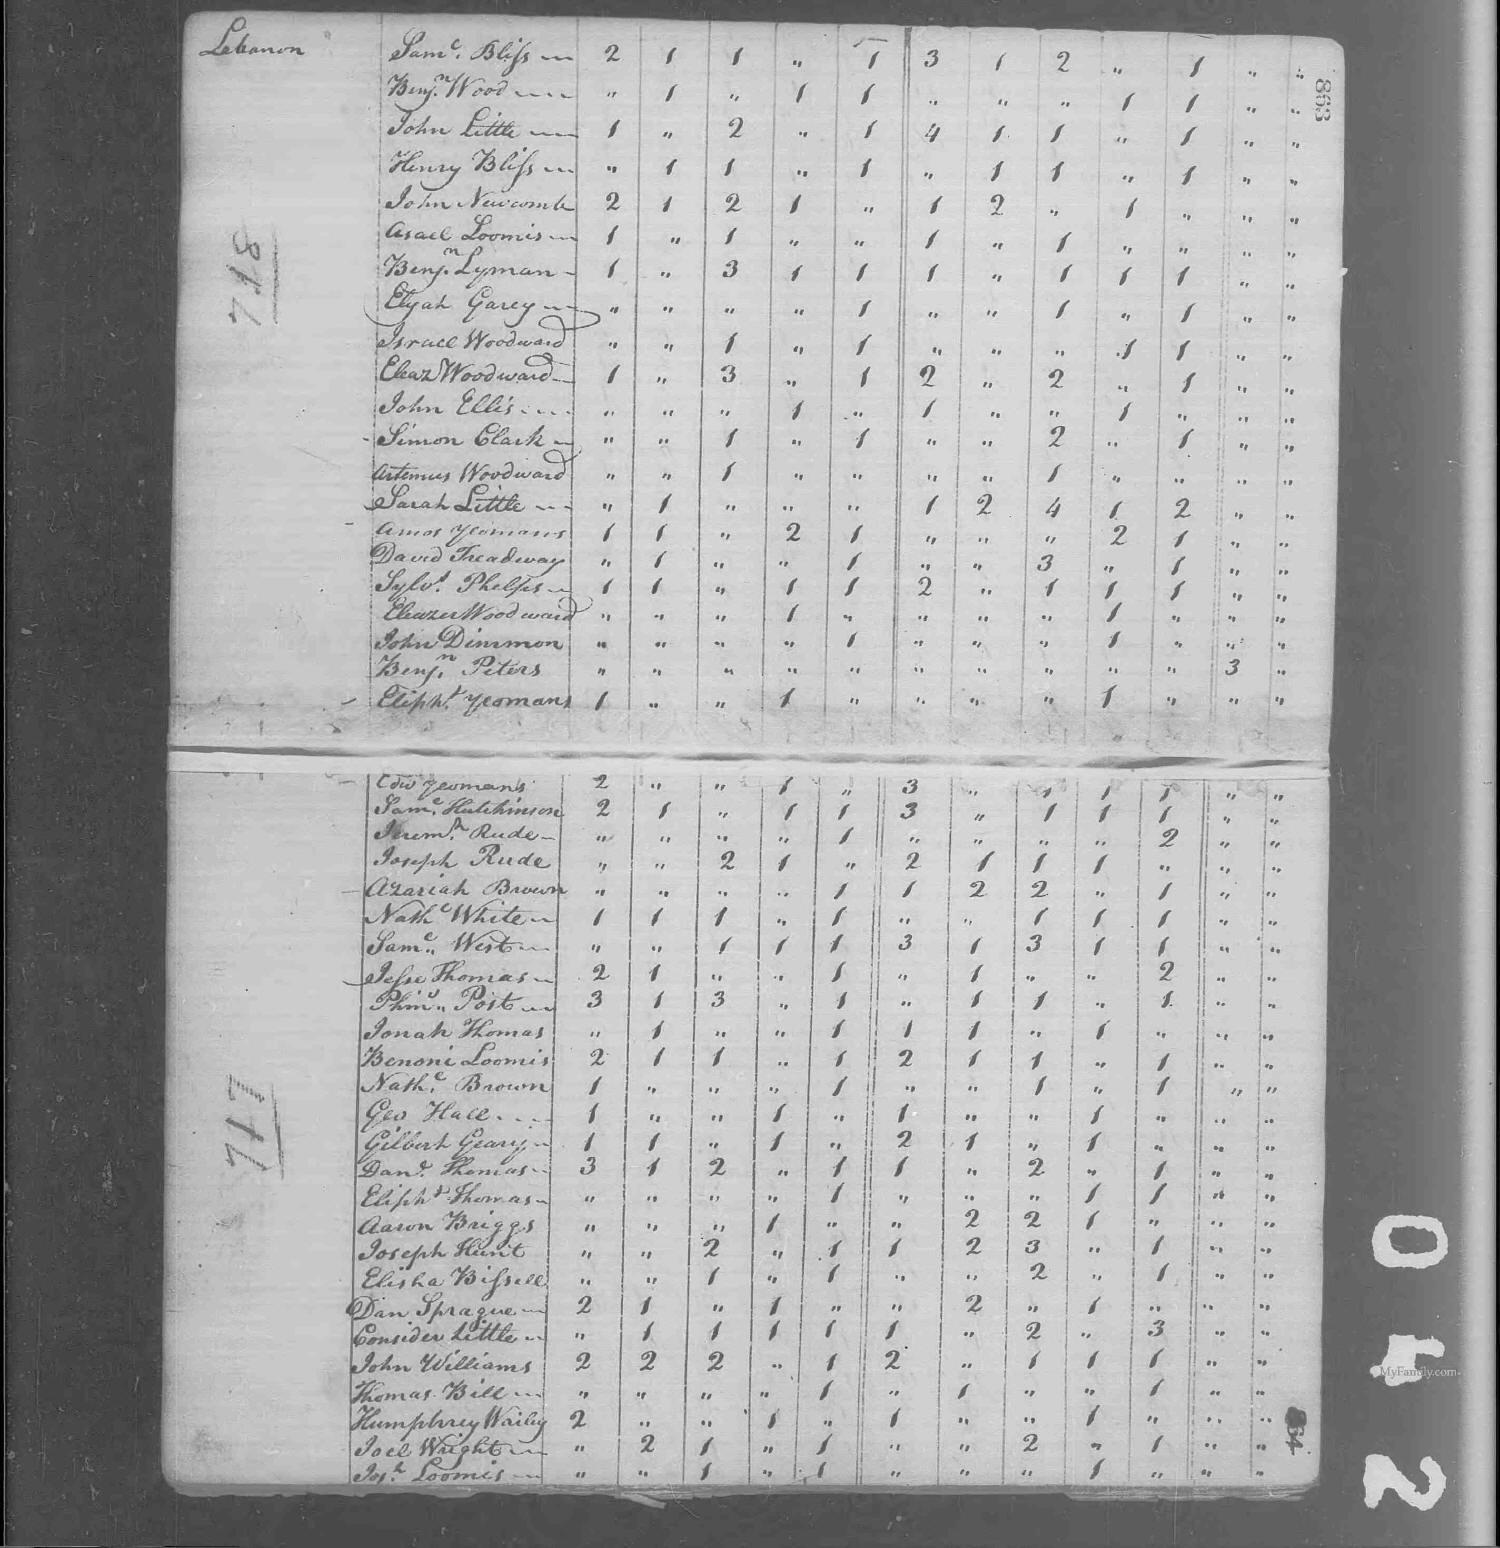 Lebanon Saml. Bliss 2 1 1 " 1 3 1 2 " 1 " "
Benjn. Wood " 1 " 1 1 " " " 1 1 " "
John Little 1 " 2 " 1 4 1 1 " 1 " "
Henry Bliss " 1 1 " 1 " 1 1 " 1 " "
John Newcomb 2 1 2 1 " 1 2 " 1 " " "
Asael Loomis 1 " 1 " " 1 " 1 " " " "
Benjn. Lyman 1 " 3 1 1 1 " 1 1 1 " "
Elijah Garey " " " " 1 " " 1 " 1 " "
Israel Woodward " " 1 " 1 " " " 1 1 " "
Eleaz Woodward 1 " 3 " 1 2 " 2 " 1 " "
John Ellis " " " 1 " 1 " " 1 " " "
Simon Clark " " 1 " 1 " " 2 " 1 " "
Artemus Woodward " " 1 " " " " 1 " " " "
Sarah Little " 1 " " " 1 2 4 1 2 " "
Amos Yeomans 1 1 " 2 1 " " " 2 1 " "
David Treadway " 1 " " 1 " " 3 " 1 " "
Sylvt. Phelps 1 1 " 1 1 2 " 1 1 1 " "
Eleazer Woodward " " " 1 " " " " 1 " " "
John Dimmon " " " " 1 " " " 1 " " "
Benjn. Peters " " " " " " " " " " 3 "
Elipht. Yeomans 1 " " 1 " " " " 1 " " "
Edw Yeomans 2 " " 1 " 3 " 1 1 1 " "
Saml. Hutchinson 2 1 " 1 1 3 " 1 1 1 " "
Jeremh. Rude " " " " 1 " " " " 2 " "
Joseph Rude " " 2 1 " 2 1 1 1 " " "
Azariah Brown " " " " 1 1 2 2 " 1 " "
Nathl White 1 1 1 " 1 " " 1 1 1 " "
Saml. West " " 1 1 1 3 1 3 1 1 " "
Jesse Thomas 2 1 " " 1 " 1 " " 2 " "
Phins. Post 3 1 3 " 1 " 1 1 " 1 " "
Jonah Thomas " 1 " " 1 1 1 " 1 " " "
Benoni Loomis 2 1 1 " 1 2 1 1 " 1 " "
Nathl. Brown 1 " " " 1 " " 1 " 1 " "
Geo Hall 1 " " 1 " 1 " " 1 " " "
Gilbert Geary 1 1 " 1 " 2 1 " 1 " " "
Danl. Thomas 3 1 2 " 1 1 " 2 " 1 " "
Elipht Thomas " " " " 1 " " " 1 1 " "
Aaron Briggs " " " 1 " " 2 2 1 " " "
Joseph Hunt " " 2 " 1 1 2 3 " 1 " "
Elisha Bissell " " 1 " 1 " " 2 " 1 " "
Dan Sprague 2 1 " 1 " " 2 " 1 " " "
Consider Little " 1 1 1 1 1 " 2 " 3 " "
John Williams 2 2 2 " 1 2 " 1 1 1 " "
Thomas Bill " " " " 1 " 1 " " 1 " "
Humphrey Wailey 2 " " 1 " 1 " " 1 " " "
Joel Wright " 2 1 " 1 " " 2 " 1 " "
Josh. Loomis " " 1 " 1 " " " 1 " " "
863
718
717
864
MyFamily.com
0152